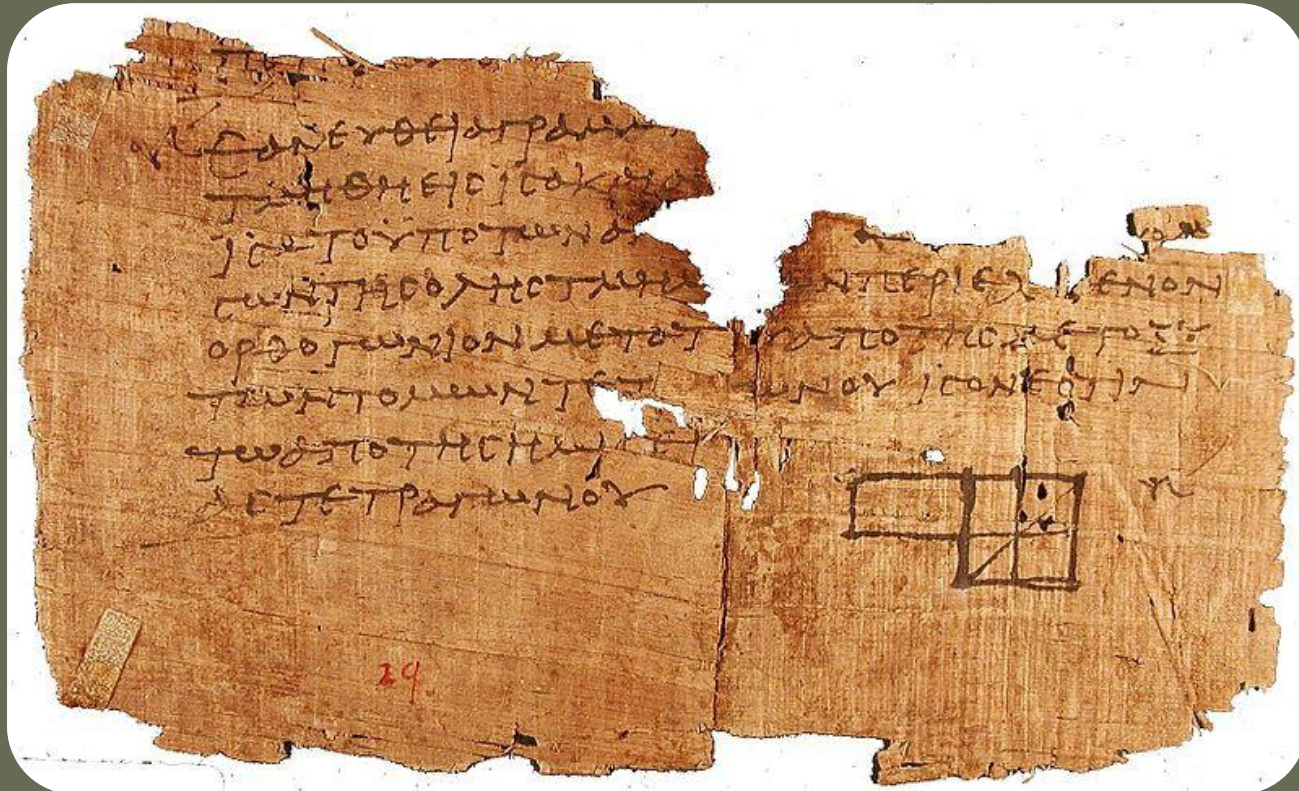 ΕΑΝ ΕΥΘΕΙΑ ΓΡΑΜ
ΤΜΗΘΗ ΕΙϹ ΙϹΑ Κ
ΙϹΑ ΤΟ ΥΠΟ ΤΩΝ Α
ϹΩΝ ΤΗϹ ΟΛΗϹ ΤΜΗΜ Ν ΠΕΡΙΕΧ ΕΝΟΝ
ΟΡΘΟΓΩΝΙΟΝ ΜΕΤΑ Τ Υ ΑΠΟ ΤΗϹ ΜΕΤΟΞΥ
ΤΩΝ ΤΟΜΩΝ ΤΕΤ ΩΝΟΥ ΙϹΟΝ ΕϹΤΙΝ
ΤΩ ΑΠΟ ΤΗϹ ΗΜΙ
ΑϹ ΤΕΤΡΑΓΩΝΟΥ
29.